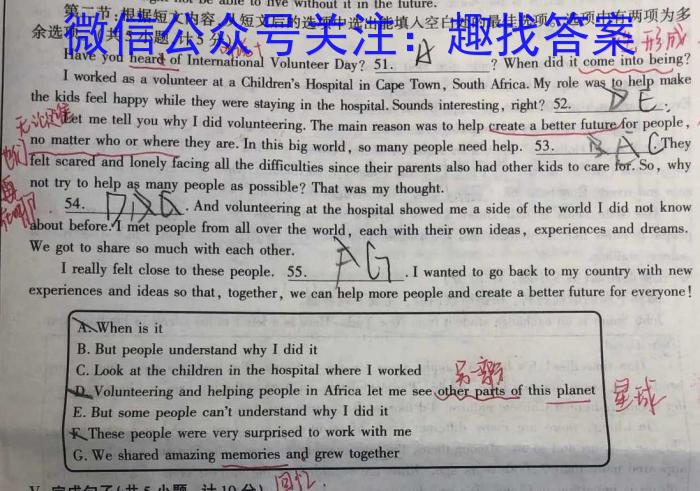 able to live without it in the future.
第二节:根据短文内容,从短文后的选项中选出能填入空白处的最佳选项。选项中有两项为多
余选项。(共5小题,计5分)
微信公众号关注:趣找答案
形成
Have you heard of International Volunteer Day? 51. A ? When did it come into being?
I worked as a volunteer at a Children's Hospital in Cape Town, South Africa. My role was to help make
the kids feel happy while they were staying in the hospital. Sounds interesting, right? 52. D E.
无论谁
Let me tell you why I did volunteering. The main reason was to help create a better future for people,
no matter who or where they are. In this big world, so many people need help. 53. B A C They
felt scared and lonely facing all the difficulties since their parents also had other kids to care for. So, why
not try to help as many people as possible? That was my thought.
54. D . And volunteering at the hospital showed me a side of the world I did not know
about before. I met people from all over the world, each with their own ideas, experiences and dreams.
We got to share so much with each other.
I really felt close to these people. 55. A G . I wanted to go back to my country with new
experiences and ideas so that, together, we can help more people and create a better future for everyone!
A. When is it
B. But people understand why I did it
C. Look at the children in the hospital where I worked
D. Volunteering and helping people in Africa let me see other parts of this planet
星球
E. But some people can't understand why I did it
F. These people were very surprised to work with me
G. We shared amazing memories and grew together
V. 完成句子(共5小题,计10分)
回忆